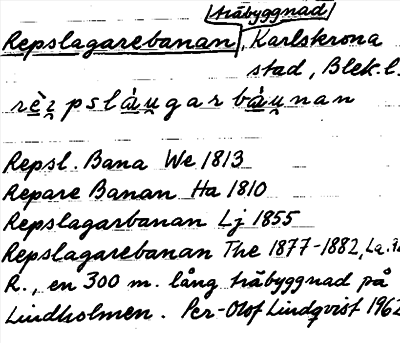 träbyggnad
Repslagarebanan, Karlskrona
stad, Blek.l.
Repsl. Bana We 1813
Repare Banan Ha 1810
Repslagarbanan Lj 1855
Repslagarebanan The 1877-1882, La.
R., en 300 m. lång träbyggnad på
Lindholmen. Per-Olof Lindqvist 1962